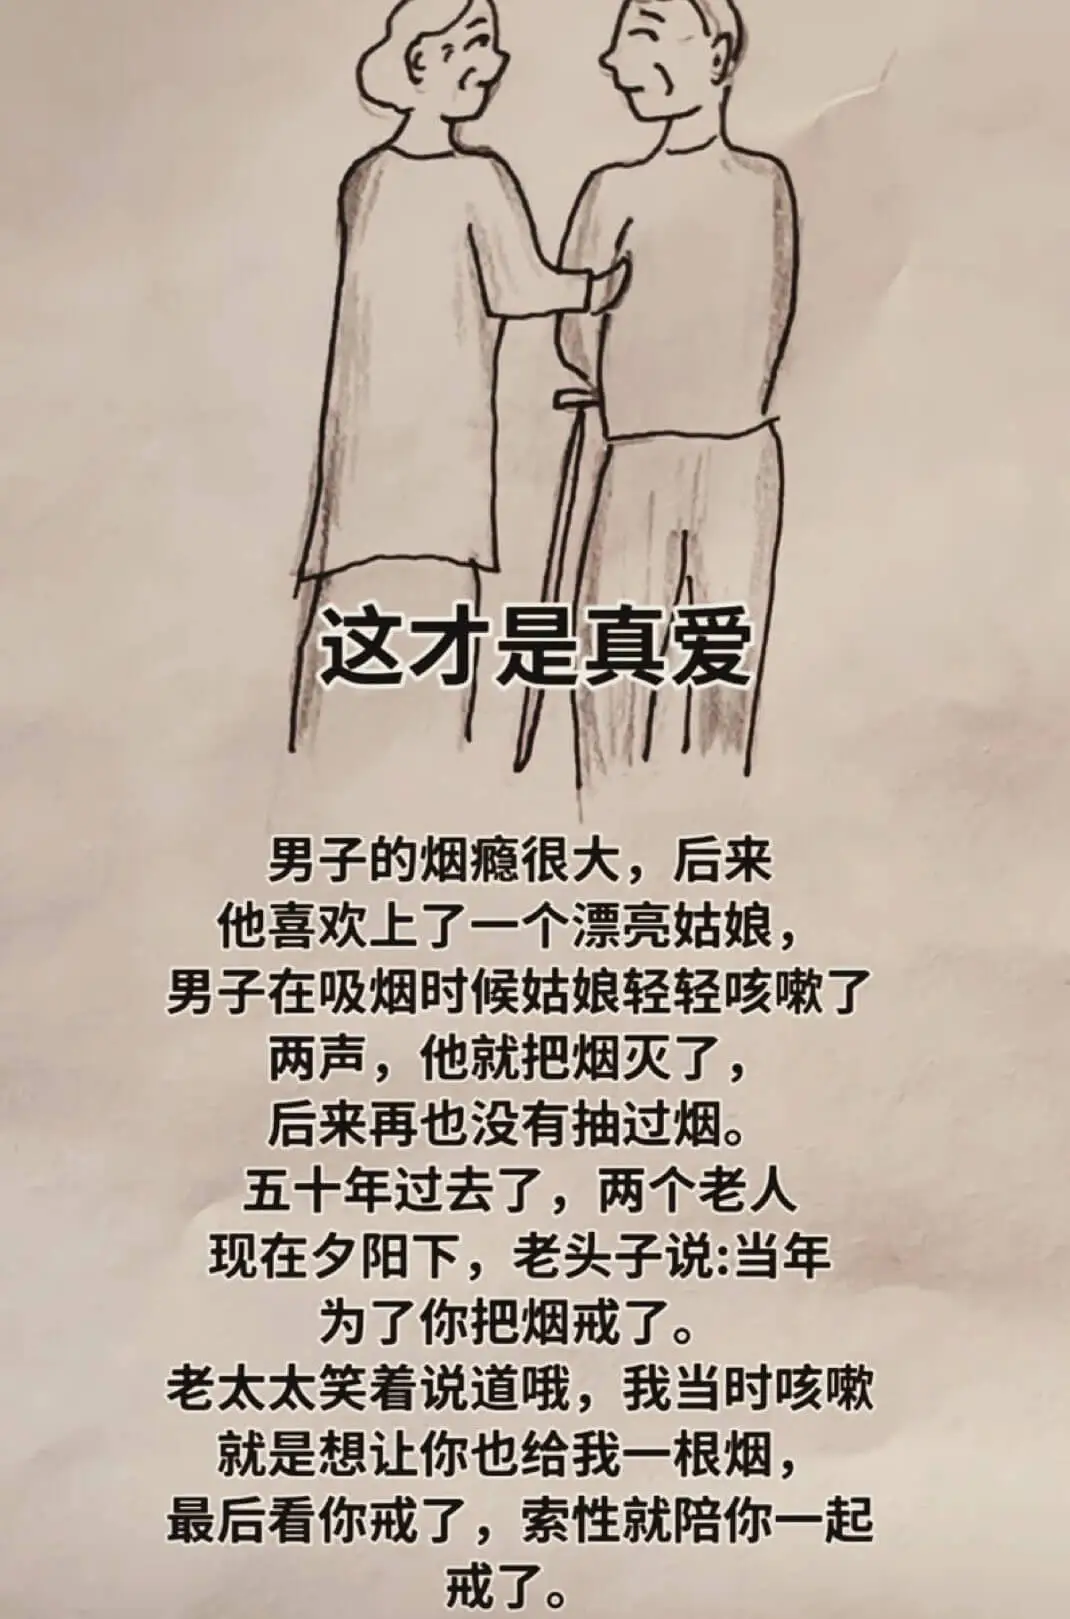 这才是真爱
男子的烟瘾很大，后来
他喜欢上了一个漂亮姑娘，
男子在吸烟时候姑娘轻轻咳嗽了
两声，他就把烟灭了，
后来再也没有抽过烟。
五十年过去了，两个老人
现在夕阳下，老头子说:当年
为了你把烟戒了。
老太太笑着说道哦，我当时咳嗽
就是想让你也给我一根烟，
最后看你戒了，索性就陪你一起
戒了。